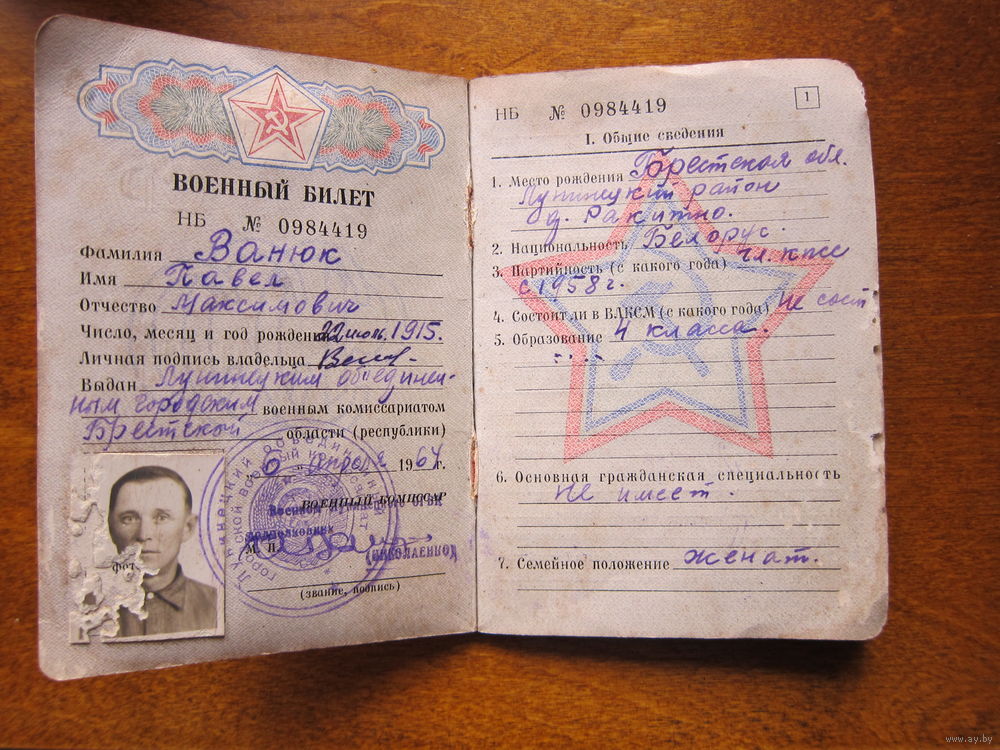 ВОЕННЫЙ БИЛЕТ
НБ № 0984419
Фамилия Ванюк
Имя Павел
Отчество Максимович
Число, месяц и год рождения 22 июль 1915.
Личная подпись владельца
Выдан Лунинецким объединен-
ным городским военным комиссариатом
Брестской области (республики)
"6" апреля 1967 г.
ВОЕННЫЙ КОМИССАР
подполковник
М. П. (НИКОЛАЕНКОВ)
(звание, подпись)
фот
НБ № 0984419 1
I. Общие сведения
1. Место рождения Брестская обл.
Лунинецкий район
д. Ракитно.
2. Национальность Белорус.
3. Партийность (с какого года) чл. КПСС
с 1958 г.
4. Состоит ли в ВЛКСМ (с какого года) Не сост
5. Образование 4 класса.
6. Основная гражданская специальность
Не имеет.
7. Семейное положение женат.
www.ay.by